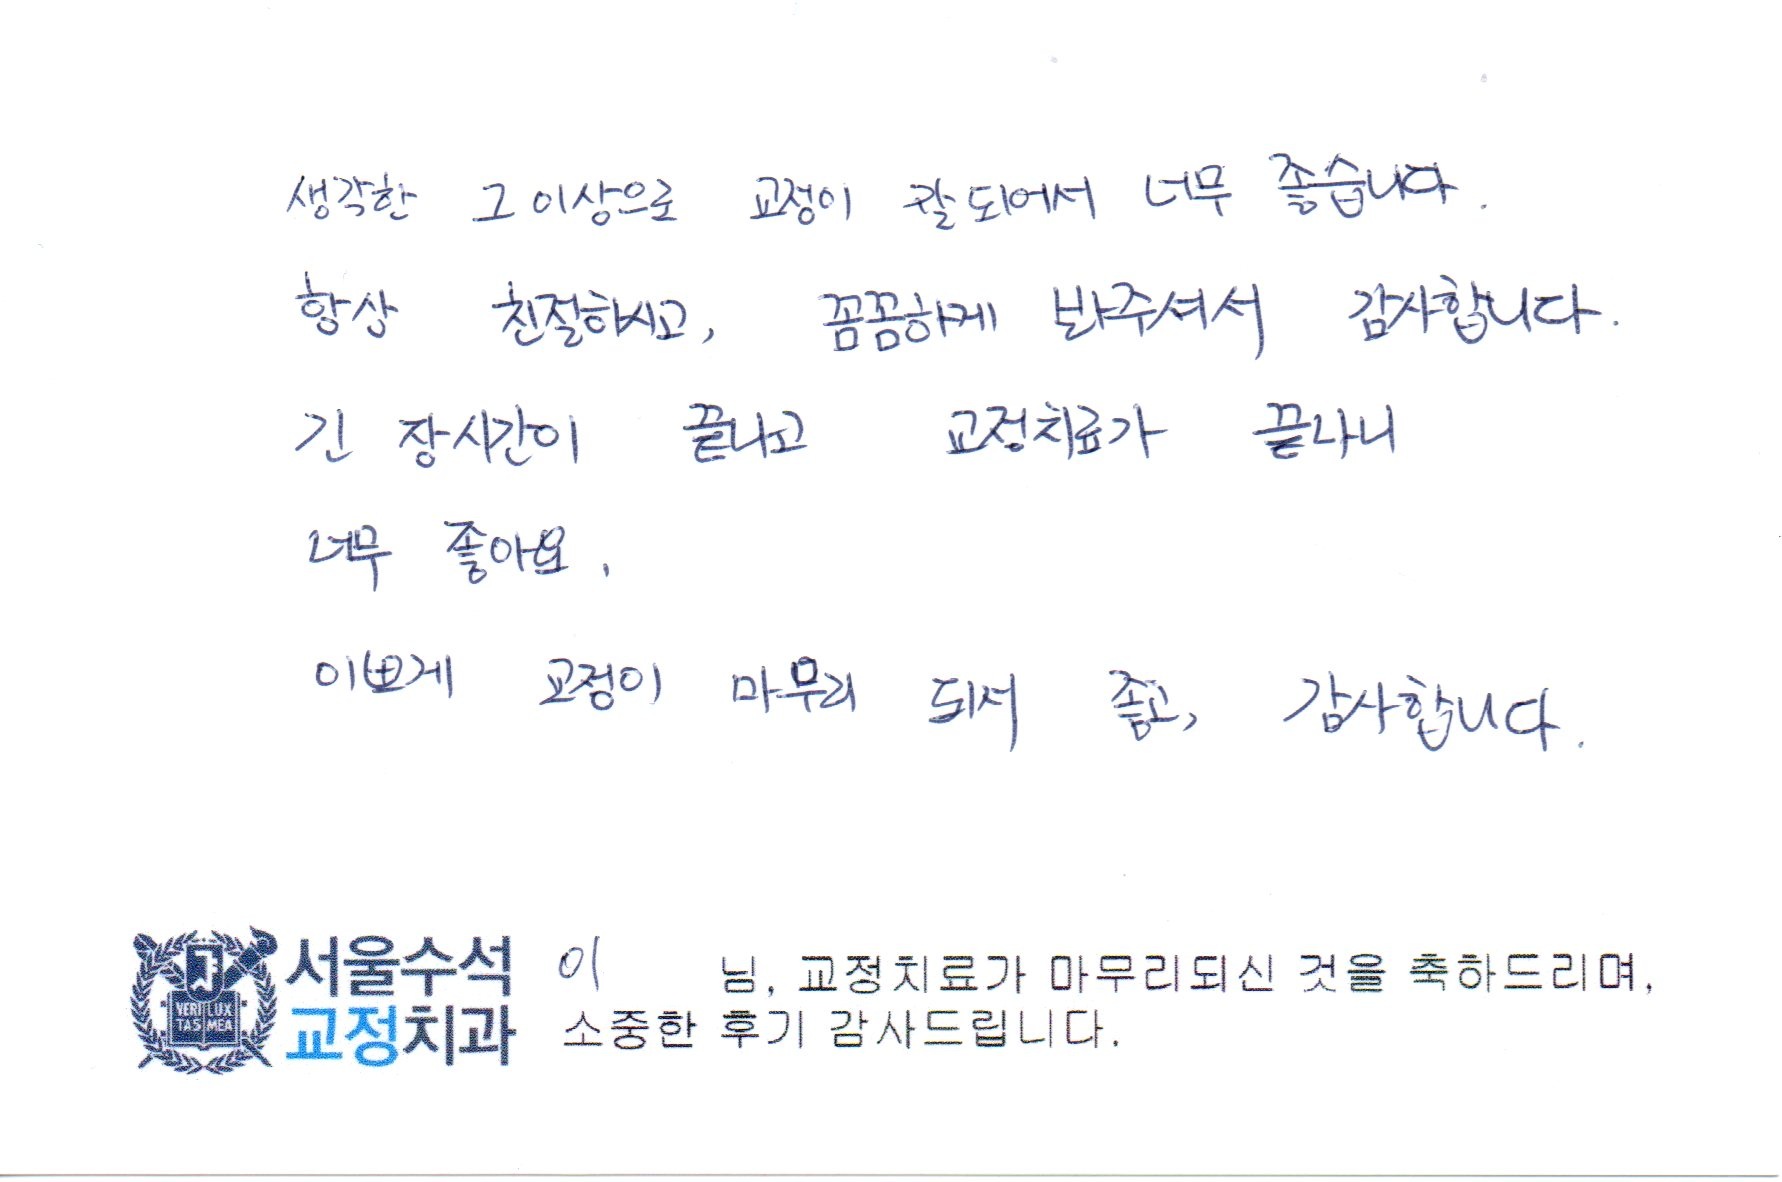 생각한 그 이상으로 교정이 잘 되어서 너무 좋습니다.
항상 친절하시고, 꼼꼼하게 봐주셔서 감사합니다.
긴 장시간이 끝나고 교정치료가 끝나니
너무 좋아요.
이쁘게 교정이 마무리 되서 좋고, 감사합니다.
VERI LUX
TAS MEA
서울수석
교정치과
이 님, 교정치료가 마무리되신 것을 축하드리며,
소중한 후기 감사드립니다.